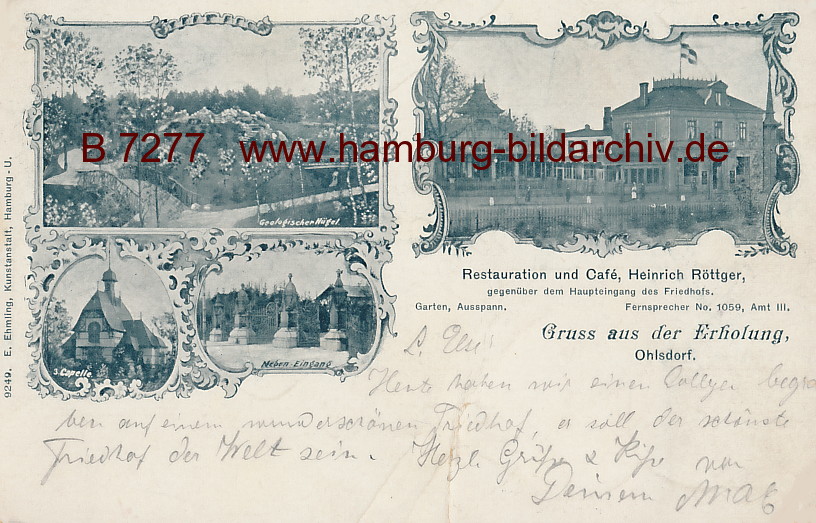 B 7277 www.hamburg-bildarchiv.de
Geologischer Hügel.
3. Capelle.
Neben-Eingang
9249. E. Ehmling, Kunstanstalt, Hamburg-U.
Restauration und Café, Heinrich Röttger,
gegenüber dem Haupteingang des Friedhofs.
Garten, Ausspann. Fernsprecher No. 1059, Amt III.
Gruss aus der Erholung,
Ohlsdorf.
L.
Heute haben wir einen Collegen begra
ben auf einem wunderschönen Friedhof, er soll der schönste
Friedhof der Welt sein. Herzl. Grüße & Küße von
Deinem Max